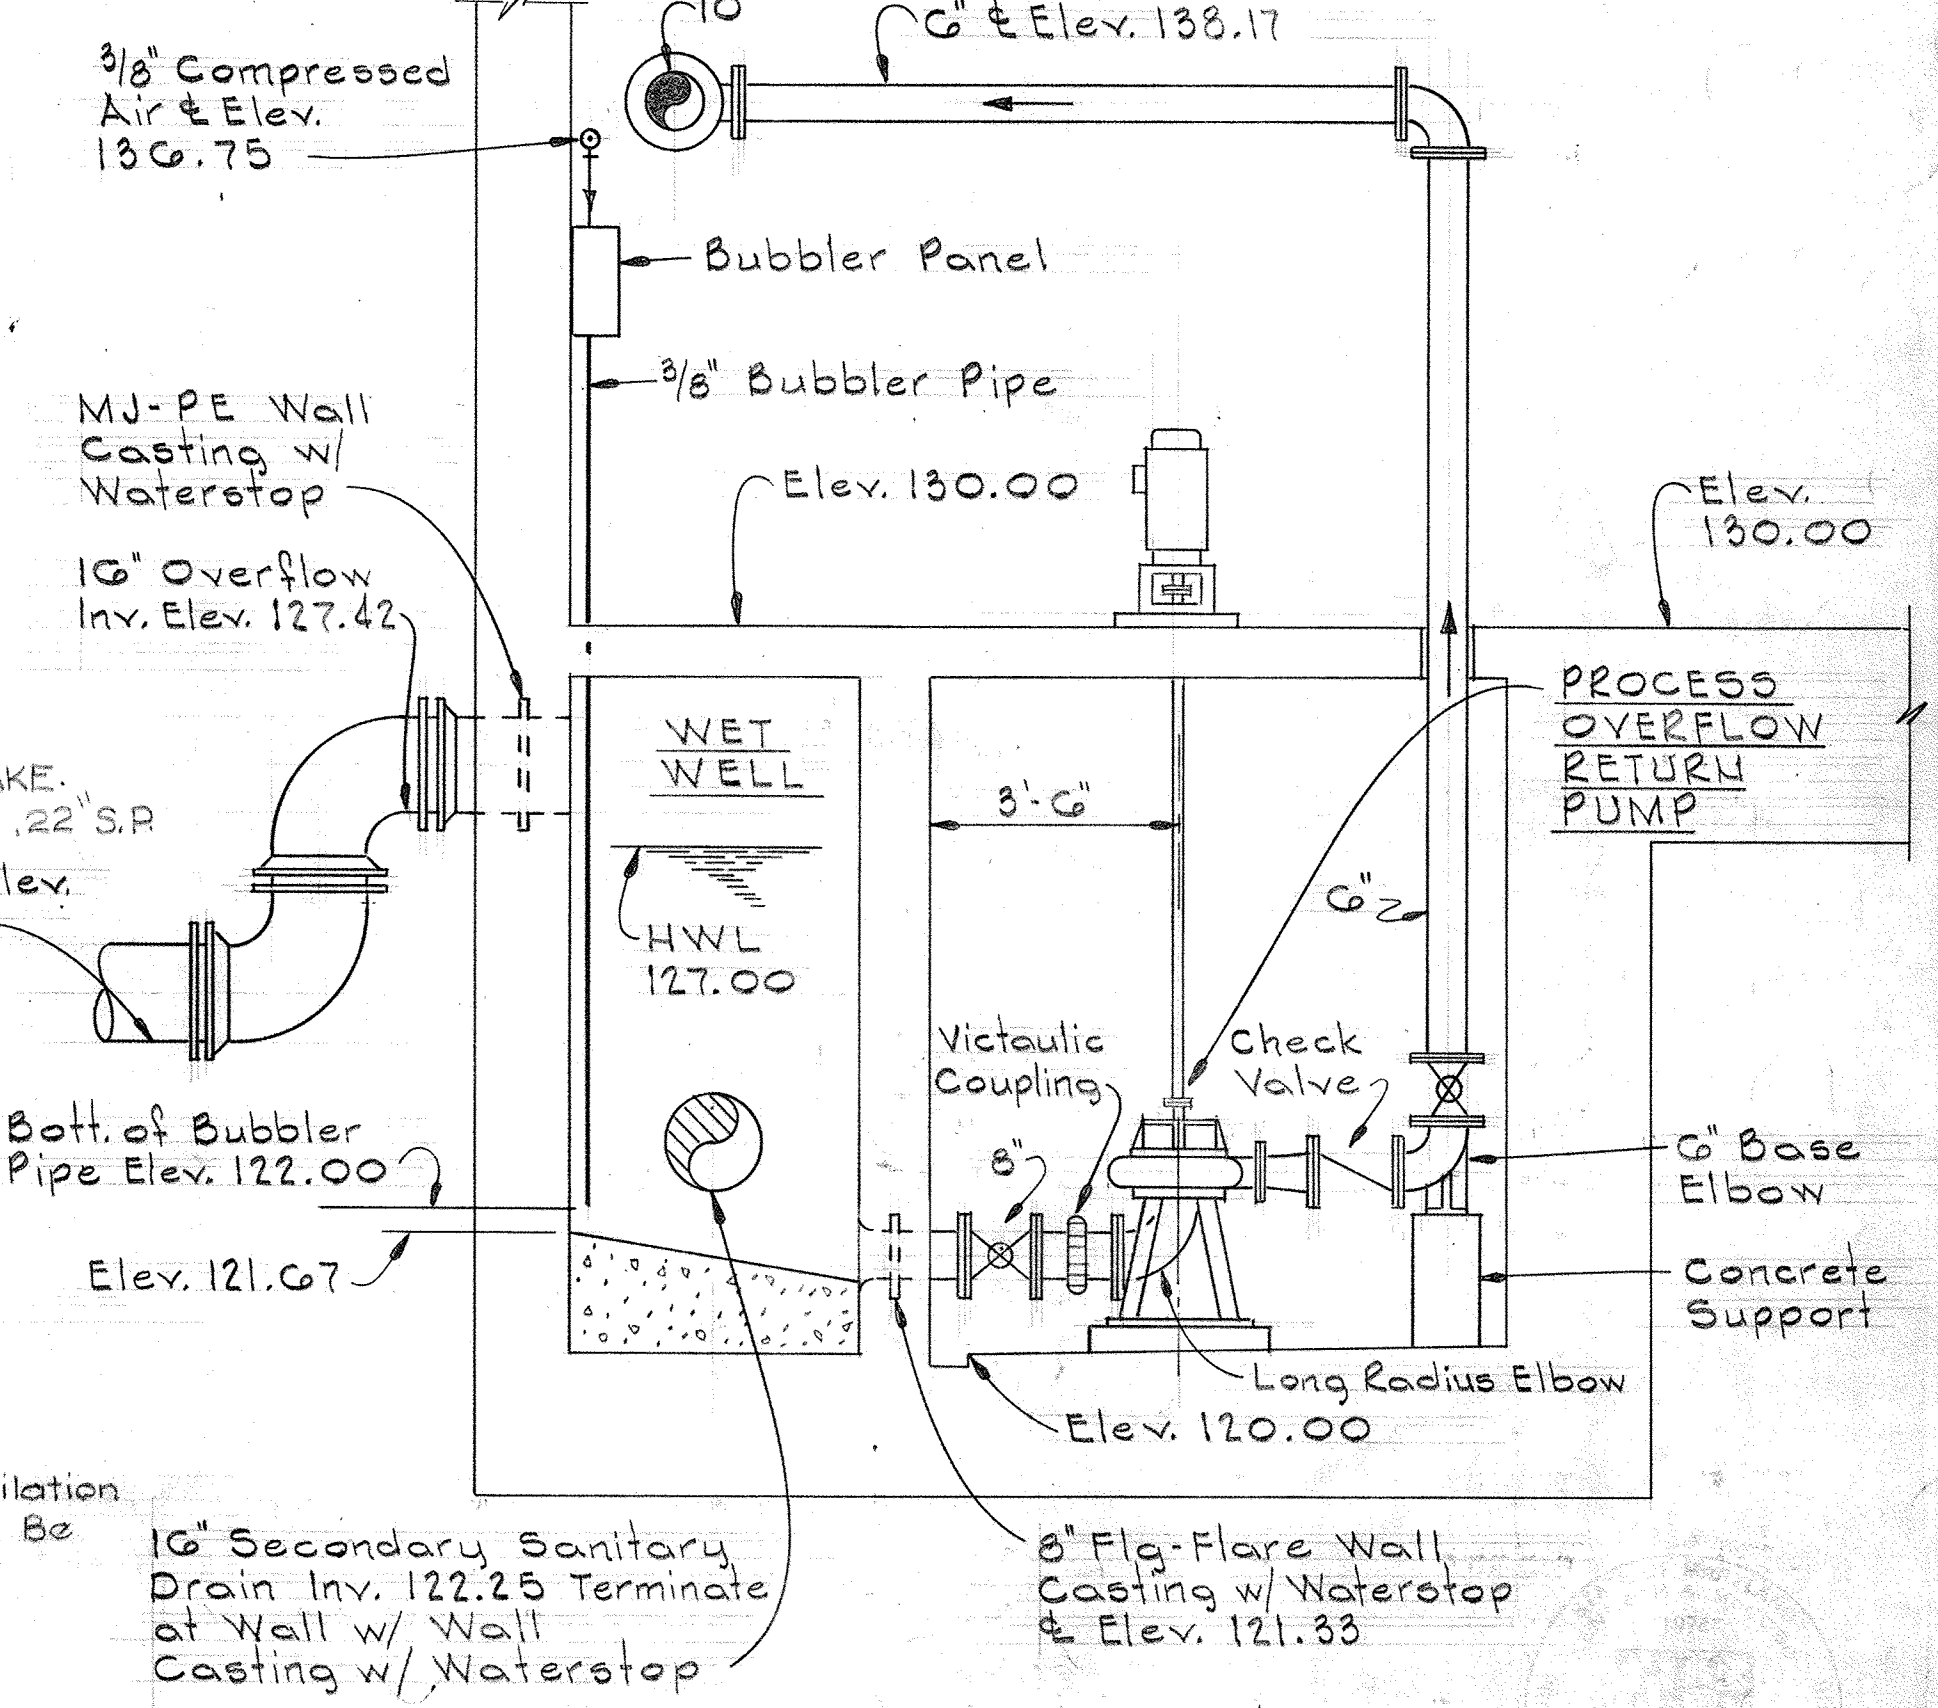 10"
6" ℄ Elev. 138.17
3/8" Compressed
Air ℄ Elev.
136.75
Bubbler Panel
3/8" Bubbler Pipe
MJ-PE Wall
Casting w/
Waterstop
Elev. 130.00
Elev.
130.00
16" Overflow
Inv. Elev. 127.42
PROCESS
OVERFLOW
RETURN
PUMP
WET
WELL
3'-6"
.22" S.P.
6"
HWL
127.00
Victaulic
Coupling
Check
Valve
Bott. of Bubbler
Pipe Elev. 122.00
8"
6" Base
Elbow
Elev. 121.67
Concrete
Support
Long Radius Elbow
Elev. 120.00
Be
16" Secondary Sanitary
Drain Inv. 122.25 Terminate
at Wall w/ Wall
Casting w/ Waterstop
8" Flg-Flare Wall
Casting w/ Waterstop
℄ Elev. 121.33